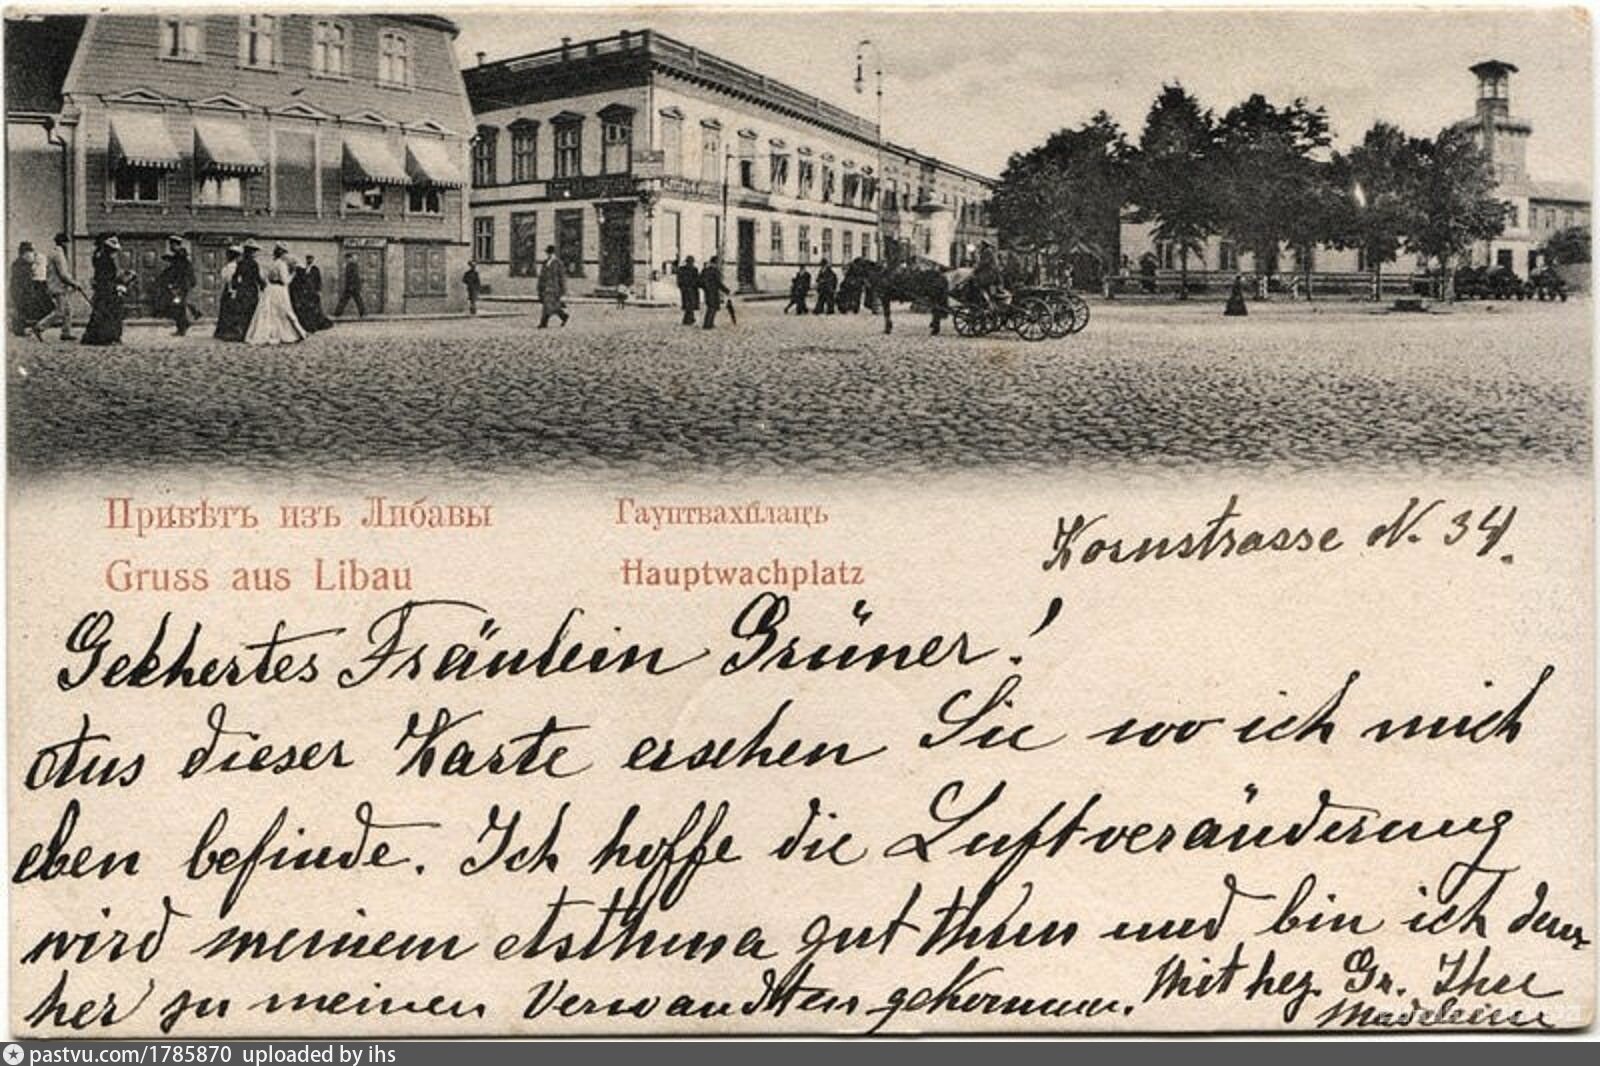 Привѣтъ изъ Либавы
Гауптвахплацъ
Gruss aus Libau
Hauptwachplatz
Kornstrasse N. 34.
Geehertes Fräulein Grüner!
Aus dieser Karte ersehen Sie wo ich mich
eben befinde. Ich hoffe die Luftveränderung
wird meinem Asthma gut thun und bin ich
her zu meinen Verwandten gekommen. Mit herz. Gr. Ihre
Madeleine
pastvu.com/1785870 uploaded by ihs